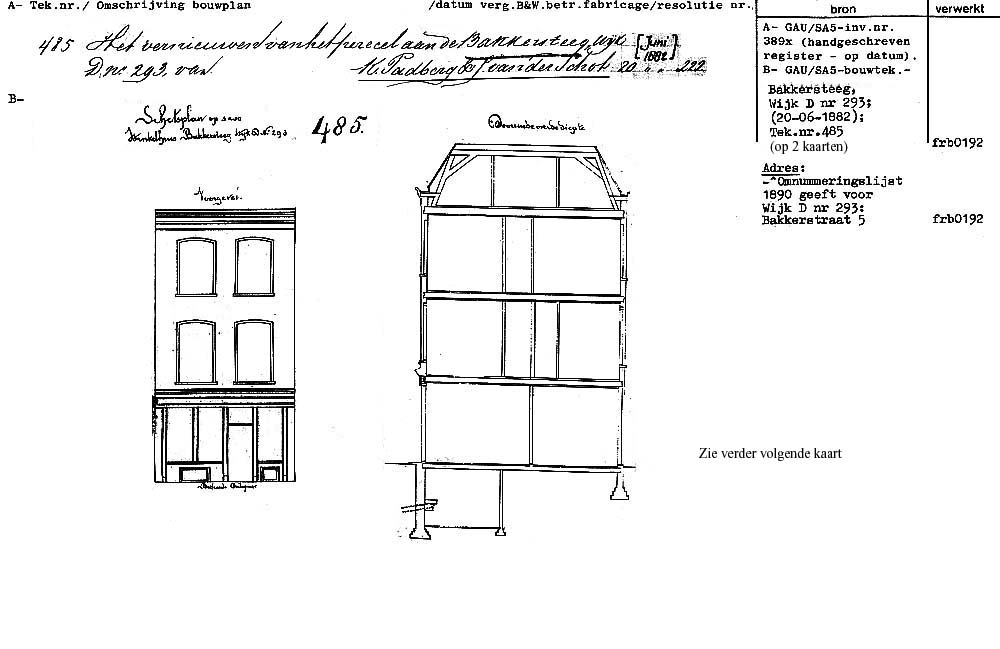 A- Tek.nr./ Omschrijving bouwplan /datum verg.B&W.betr.fabricage/resolutie nr.
bron verwerkt
485 Het vernieuwen van het perceel aan de Bakkersteeg, Wijk [Juni 1882]
D, no 293, van H. Padberg & J. van der Schot. 20 " " 222
A- GAU/SA5-inv.nr.
389x (handgeschreven
register - op datum).
B- GAU/SA5-bouwtek.-
Bakkersteeg,
Wijk D nr 293;
(20-06-1882);
Tek.nr.485
(op 2 kaarten) frb0192
Adres:
-^Omnummeringslijst
1890 geeft voor
Wijk D nr 293:
Bakkerstraat 5 frb0192
B-
Schetsplan op
Winkelhuis Bakkersteeg Wijk D. No 293
485.
Doorsnede over de diepte
Voorgevel.
Zie verder volgende kaart